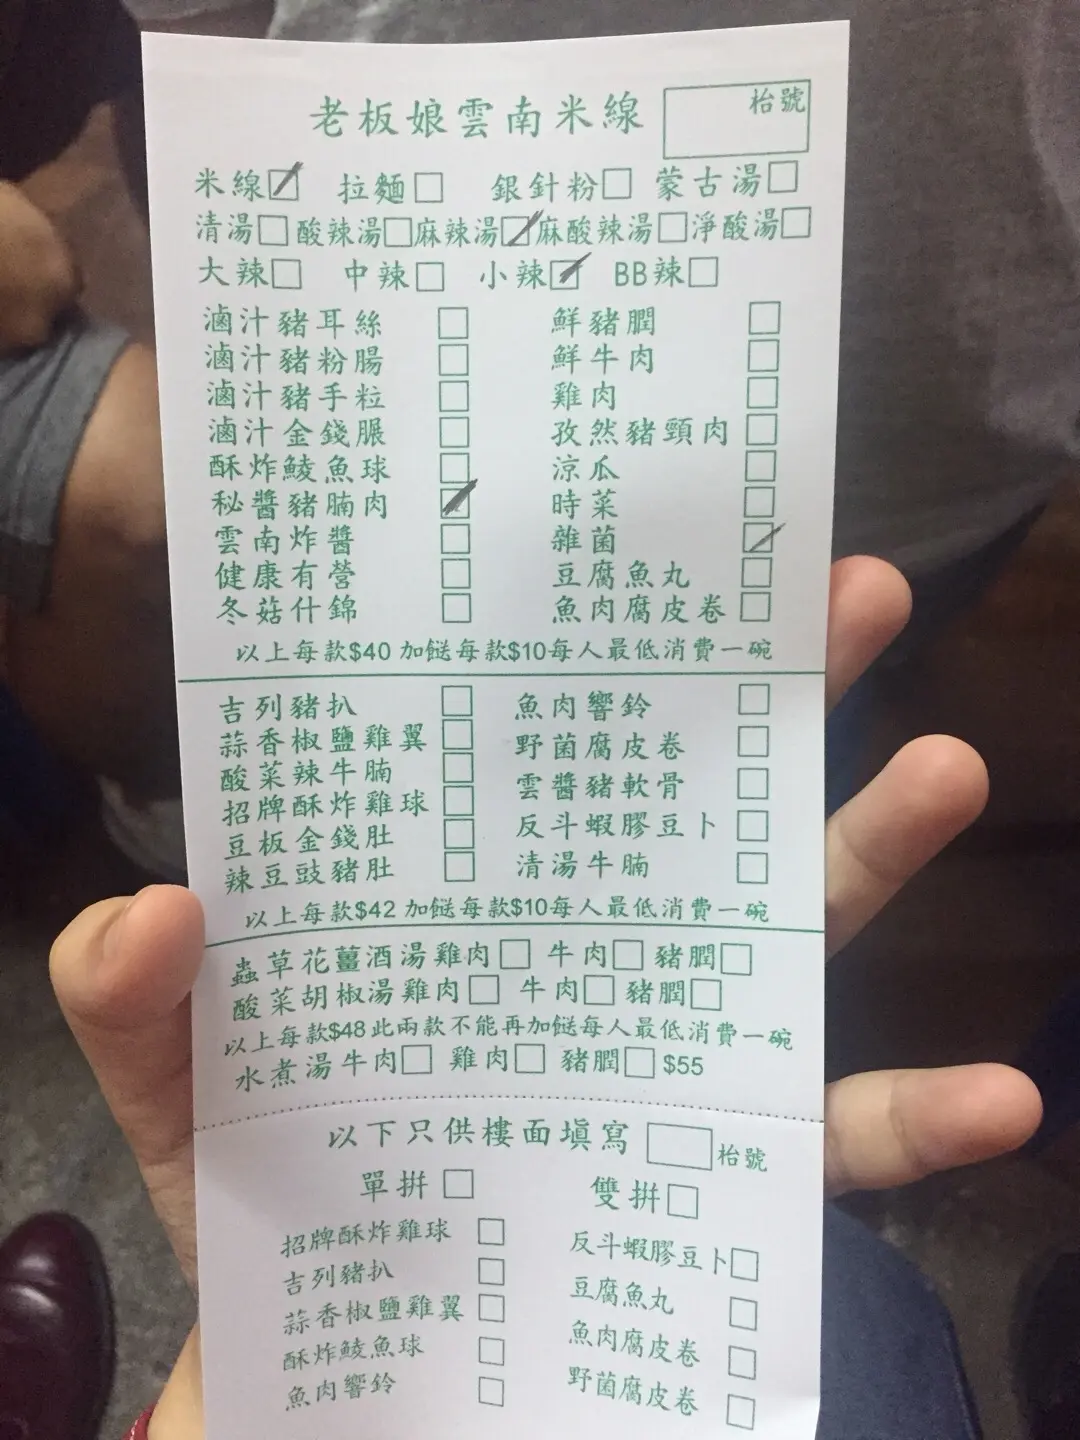 老板娘雲南米線 枱號
米線 拉麵 銀針粉 蒙古湯
清湯 酸辣湯 麻辣湯 麻酸辣湯 淨酸湯
大辣 中辣 小辣 BB辣
滷汁豬耳絲 鮮豬膶
滷汁豬粉腸 鮮牛肉
滷汁豬手粒 雞肉
滷汁金錢脤 孜然豬頸肉
酥炸鯪魚球 涼瓜
秘醬豬腩肉 時菜
雲南炸醬 雜菌
健康有營 豆腐魚丸
冬菇什錦 魚肉腐皮卷
以上每款$40 加餸每款$10每人最低消費一碗
吉列豬扒 魚肉響鈴
蒜香椒鹽雞翼 野菌腐皮卷
酸菜辣牛腩 雲醬豬軟骨
招牌酥炸雞球 反斗蝦膠豆卜
豆板金錢肚 清湯牛腩
辣豆豉豬肚
以上每款$42 加餸每款$10每人最低消費一碗
蟲草花薑酒湯雞肉 牛肉 豬膶
酸菜胡椒湯雞肉 牛肉 豬膶
以上每款$48此兩款不能再加餸每人最低消費一碗
水煮湯牛肉 雞肉 豬膶 $55
以下只供樓面填寫 枱號
單拼 雙拼
招牌酥炸雞球 反斗蝦膠豆卜
吉列豬扒 豆腐魚丸
蒜香椒鹽雞翼 魚肉腐皮卷
酥炸鯪魚球 野菌腐皮卷
魚肉響鈴